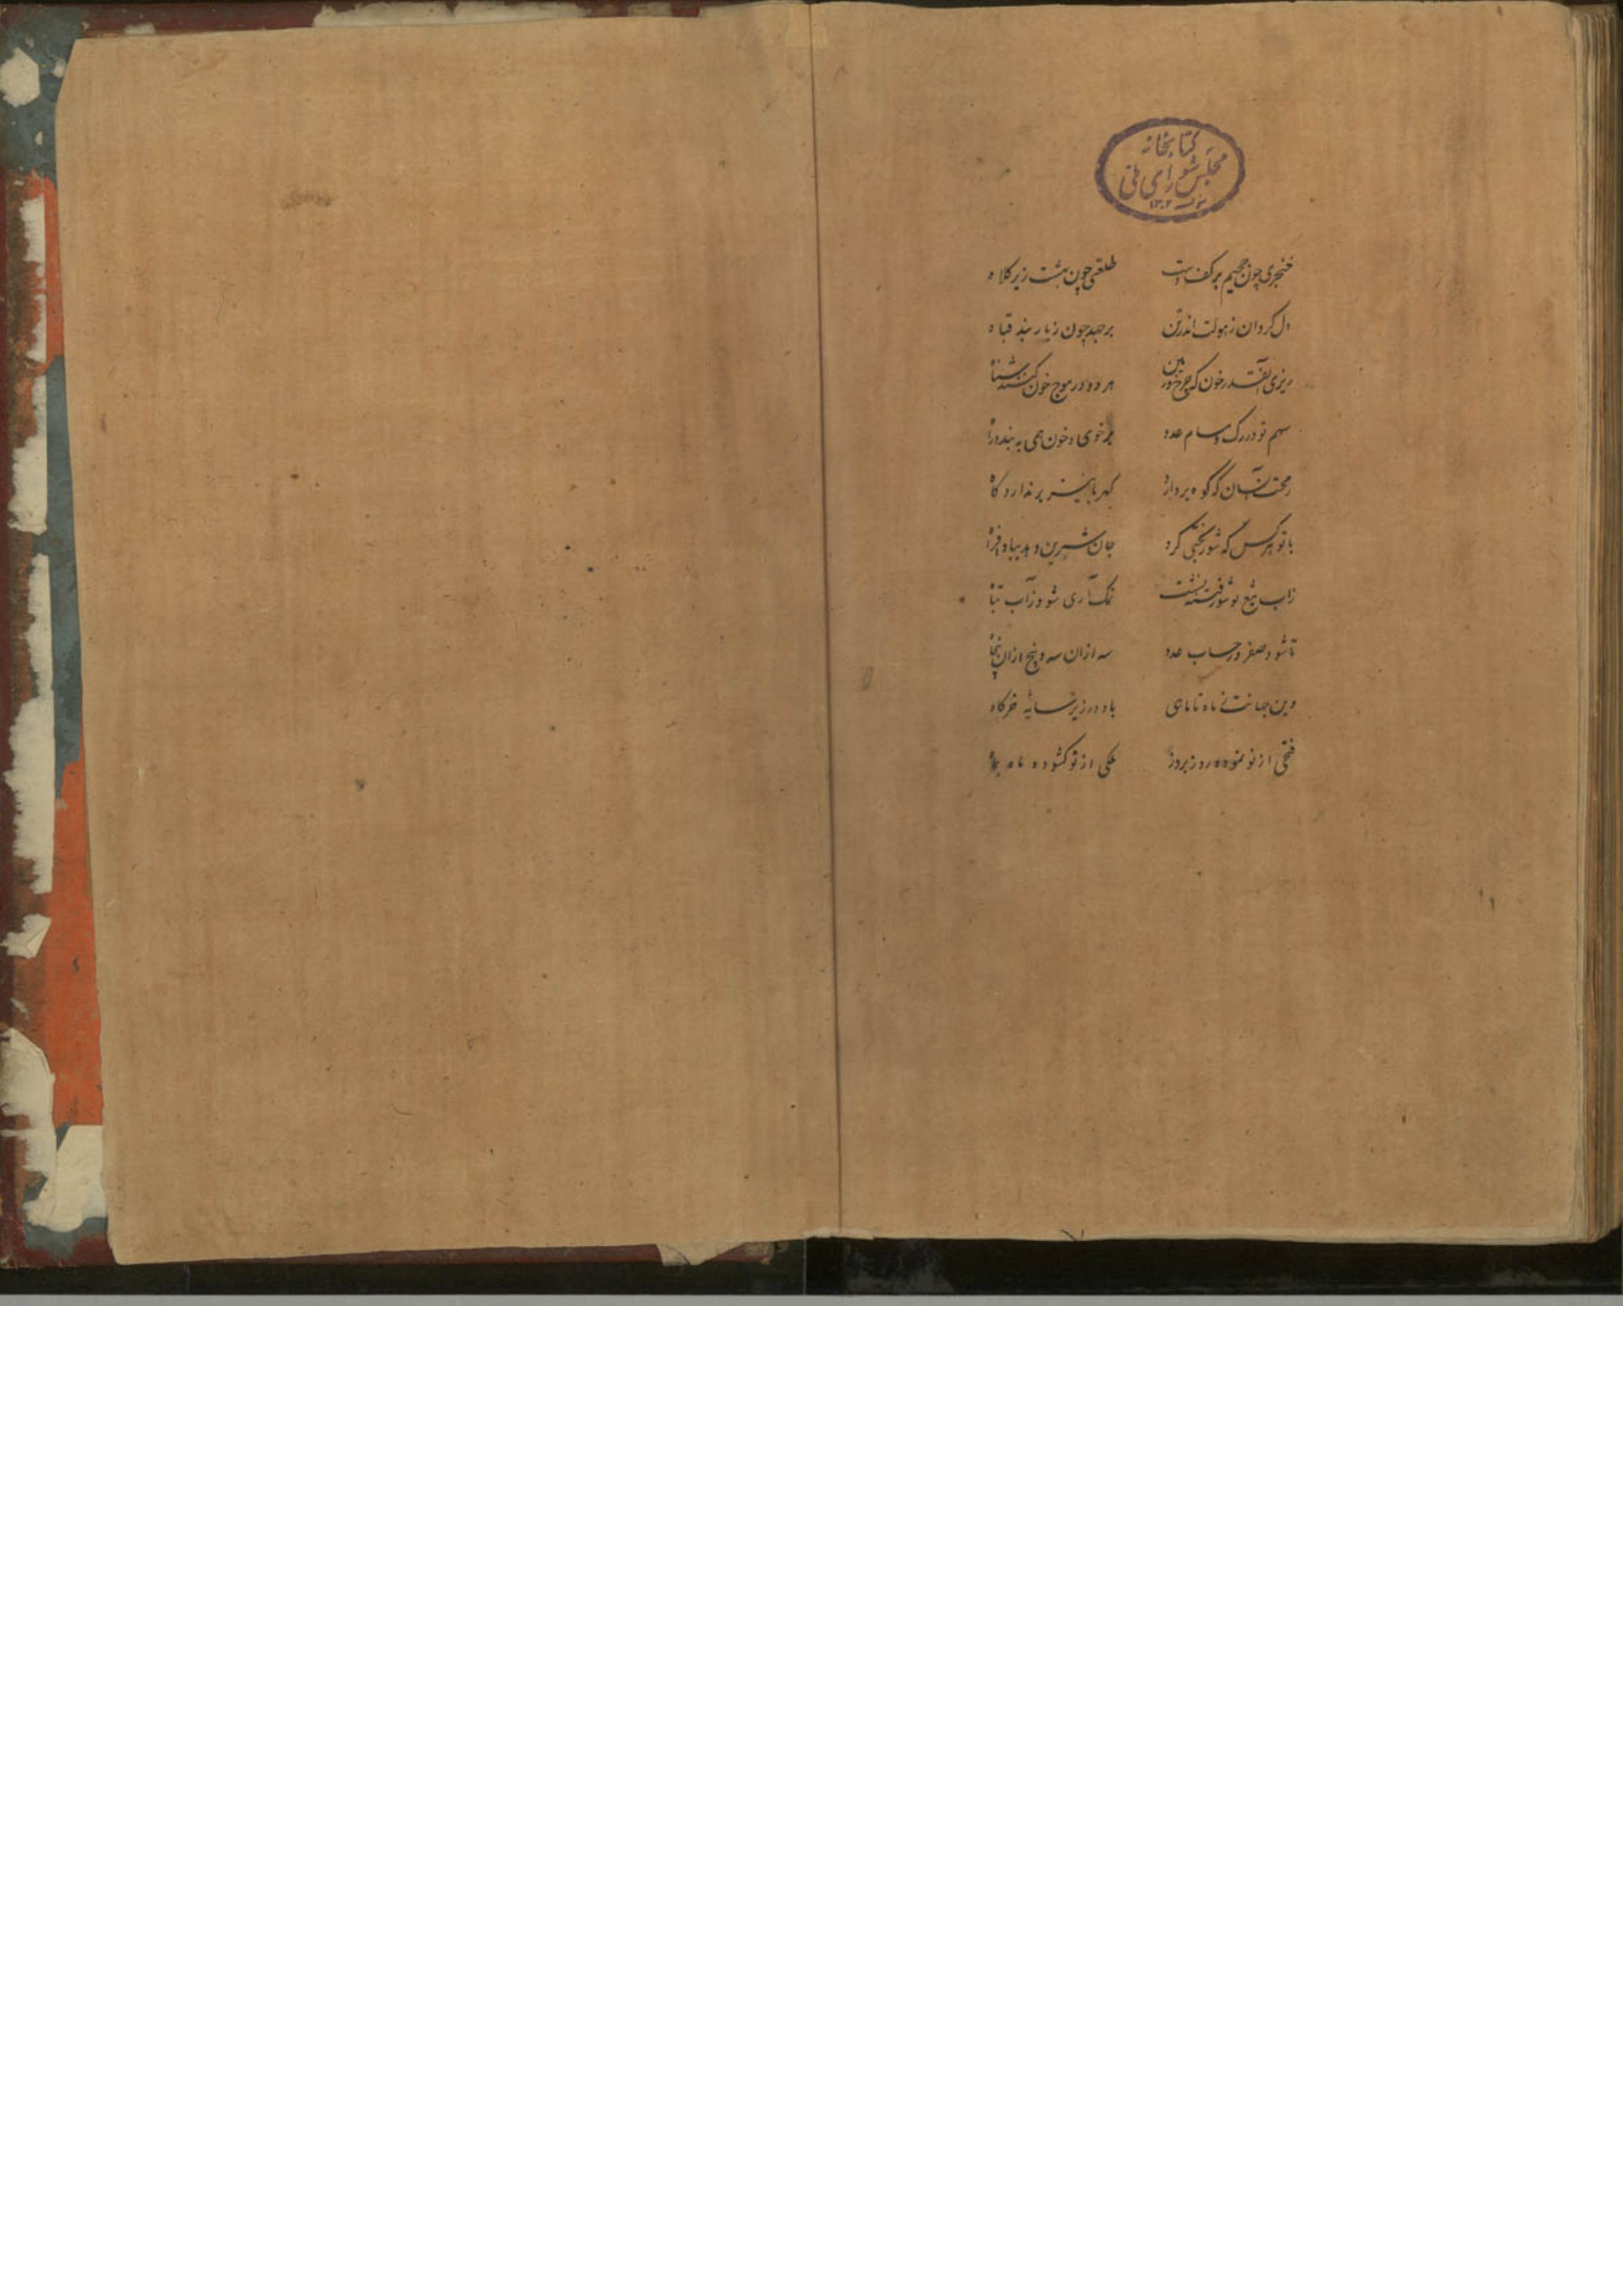 کتابخانه
مجلس شورای ملی
۱۳۰۲
خنجری چون جحیم بر کف دست طلعتی چون بهشت زیر کلاه
دل کردان ز هولت اندر تن برجهد چون ز بار بند قباه
ریزی آنقدر خون که چرخ زمین هر دو در موج خون کنند شناه
سهم تو در رک و مسام عدو خوی و خون همی به بندد راه
آنسان که کوه بردارد کهربا نیز بر ندارد کاه
با تو هر کس که شوربختی کرد جان شیرین دهد بباد افراه
زاب تیغ تو شور فتنه نشست نمک آری شود ز آب تباه
تا شود صفر در حساب عدد سه از ان سه و پنج از ان پنجاه
وین جهانت ز ماه تا ماهی باد در زیر سایه خرکاه
فتحی از تو نموده روز بروز ملکی از تو کشوده ماه بماه